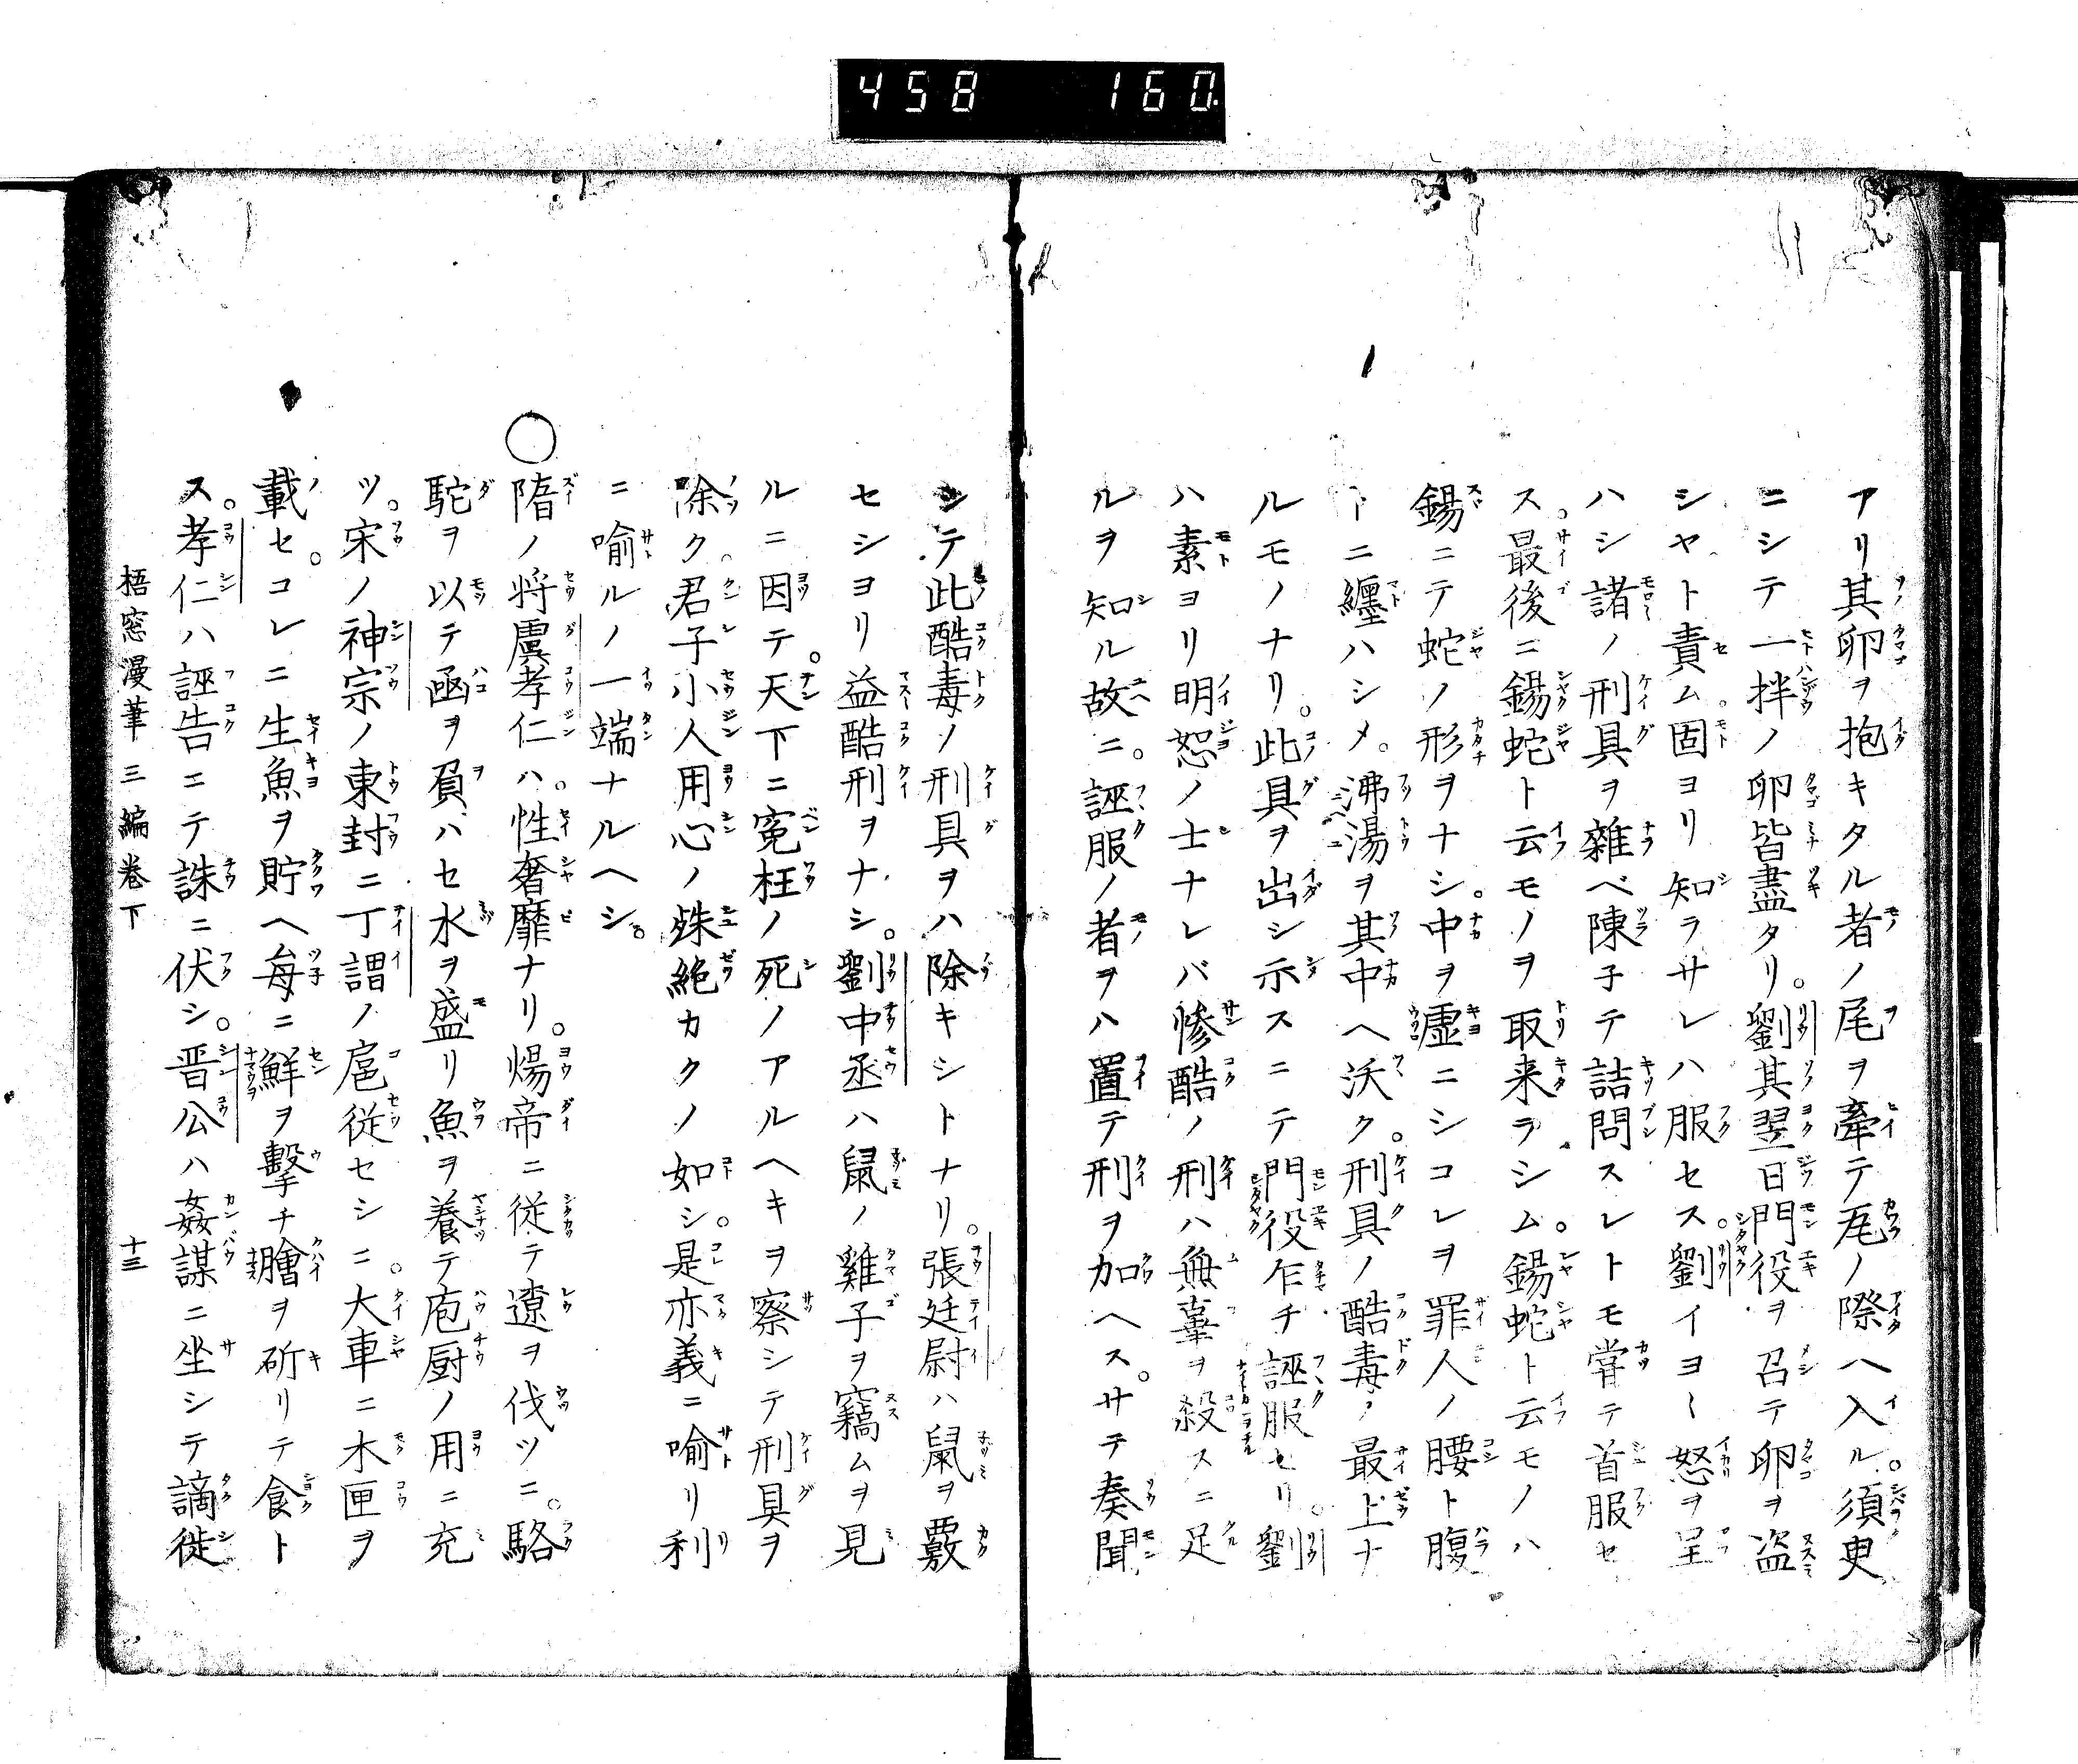 458 160
アリ其卵ヲ抱キタル者ノ尾ヲ牽テ瓦ノ際ヘ入ル。須臾
ニシテ一拌ノ卵皆盡タリ。劉其翌日門役ヲ召テ卵ヲ盗
シヤト責ム。固ヨリ知ラサレハ服セス。劉イヨ〱怒ヲ呈
ハシ諸ノ刑具ヲ雜ベ陳子テ詰問スレトモ甞テ首服セ
ス。最後ニ錫蛇ト云モノヲ取来ラシム。錫蛇ト云モノハ
錫ニテ蛇ノ形ヲナシ。中ヲ虚ニシコレヲ罪人ノ腰ト腹
トニ纏ハシメ。沸湯ヲ其中ヘ沃ク。刑具ノ酷毒ノ最上ナ
ルモノナリ。此具ヲ出シ示スニテ門役乍チ誣服セリ。劉
ハ素ヨリ明恕ノ士ナレバ惨酷ノ刑ハ無辜ヲ殺スニ足
ルヲ知ル故ニ。誣服ノ者ヲハ置テ刑ヲ加ヘス。サテ奏聞
シテ此酷毒ノ刑具ヲハ除キシトナリ。張廷尉ハ鼠ヲ覈
セシヨリ益酷刑ヲナシ。劉中丞ハ鼠ノ雞子ヲ竊ムヲ見
ルニ因テ。天下ニ寃枉ノ死ノアルヘキヲ察シテ刑具ヲ
除ク。君子小人用心ノ殊絶カクノ如シ。是亦義ニ喩リ利
ニ喩ルノ一端ナルヘシ。
○隋ノ将虞孝仁ハ。性奢靡ナリ。煬帝ニ従テ遼ヲ伐ツニ。駱
駝ヲ以テ函ヲ負ハセ水ヲ盛リ魚ヲ養テ庖厨ノ用ニ充
ツ。宋ノ神宗ノ東封ニ丁謂ノ扈従セシニ。大車ニ木匣ヲ
載セ。コレニ生魚ヲ貯ヘ毎ニ鮮ヲ擊チ膾ヲ斫リテ食ト
ス。孝仁ハ誣告ニテ誅ニ伏シ。晋公ハ姦謀ニ坐シテ謫徙
梧窓漫筆三編巻下 十三